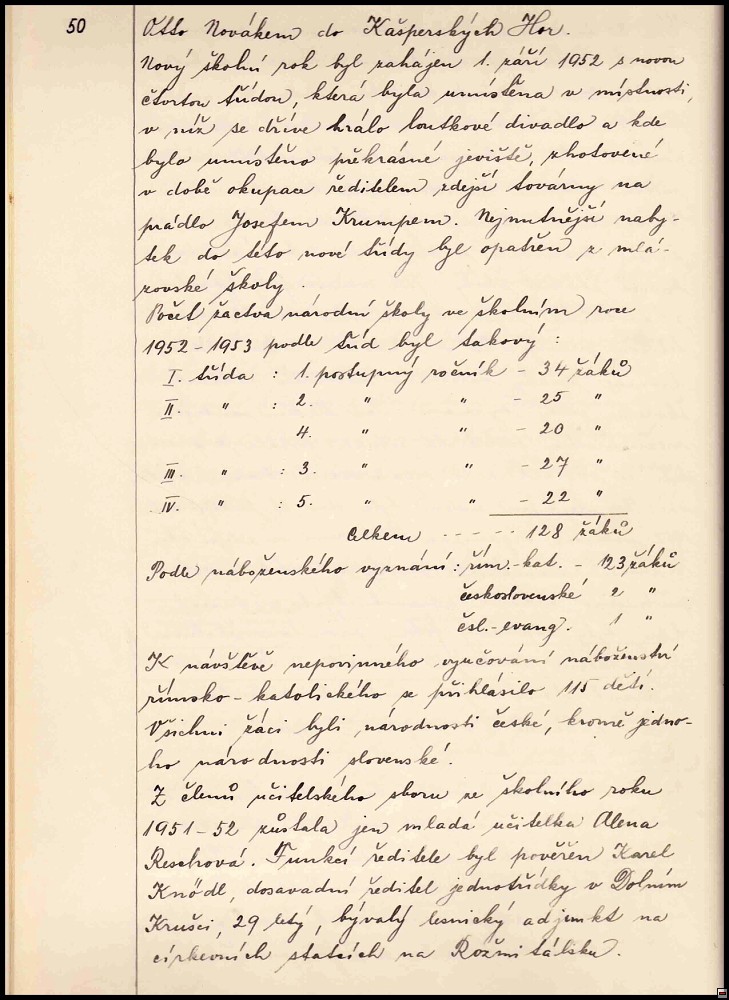 50
Otto Novákem do Kašperských Hor.
Nový školní rok byl zahájen 1. září 1952 s novou
čtvrtou třídou, která byla umístěna v místnosti,
v níž se dříve hrálo loutkové divadlo a kde
bylo umístěno překrásné jeviště, zhotovené
v době okupace ředitelem zdejší továrny na
prádlo Josefem Krumpem. Nejnutnější naby-
tek do této nové třídy byl opatřen z mla-
zovské školy.
Počet žactva národní školy ve školním roce
1952-1953 podle tříd byl takový:
I. třída : 1. postupný ročník - 34 žáků
II. " : 2. " " - 25 "
4. " " - 20 "
III. " : 3. " " - 27 "
IV. " : 5. " " - 22 "
Celkem - - - - 128 žáků
Podle náboženského vyznání: řím.-kat. - 123 žáků
československé 2 "
čsl.-evang. 1 "
K návštěvě nepovinného vyučování náboženství
římsko-katolického se přihlásilo 115 dětí.
Všichni žáci byli národnosti české, kromě jedno-
ho národnosti slovenské.
Z členů učitelského sboru ze školního roku
1951-52 zůstala jen mladá učitelka Alena
Reschová. Funkcí ředitele byl pověřen Karel
Knödl, dosavadní ředitel jednotřídky v Dolním
Krušci, 29 letý, bývalý lesnický adjunkt na
církevních statcích na Rožmitálsku.